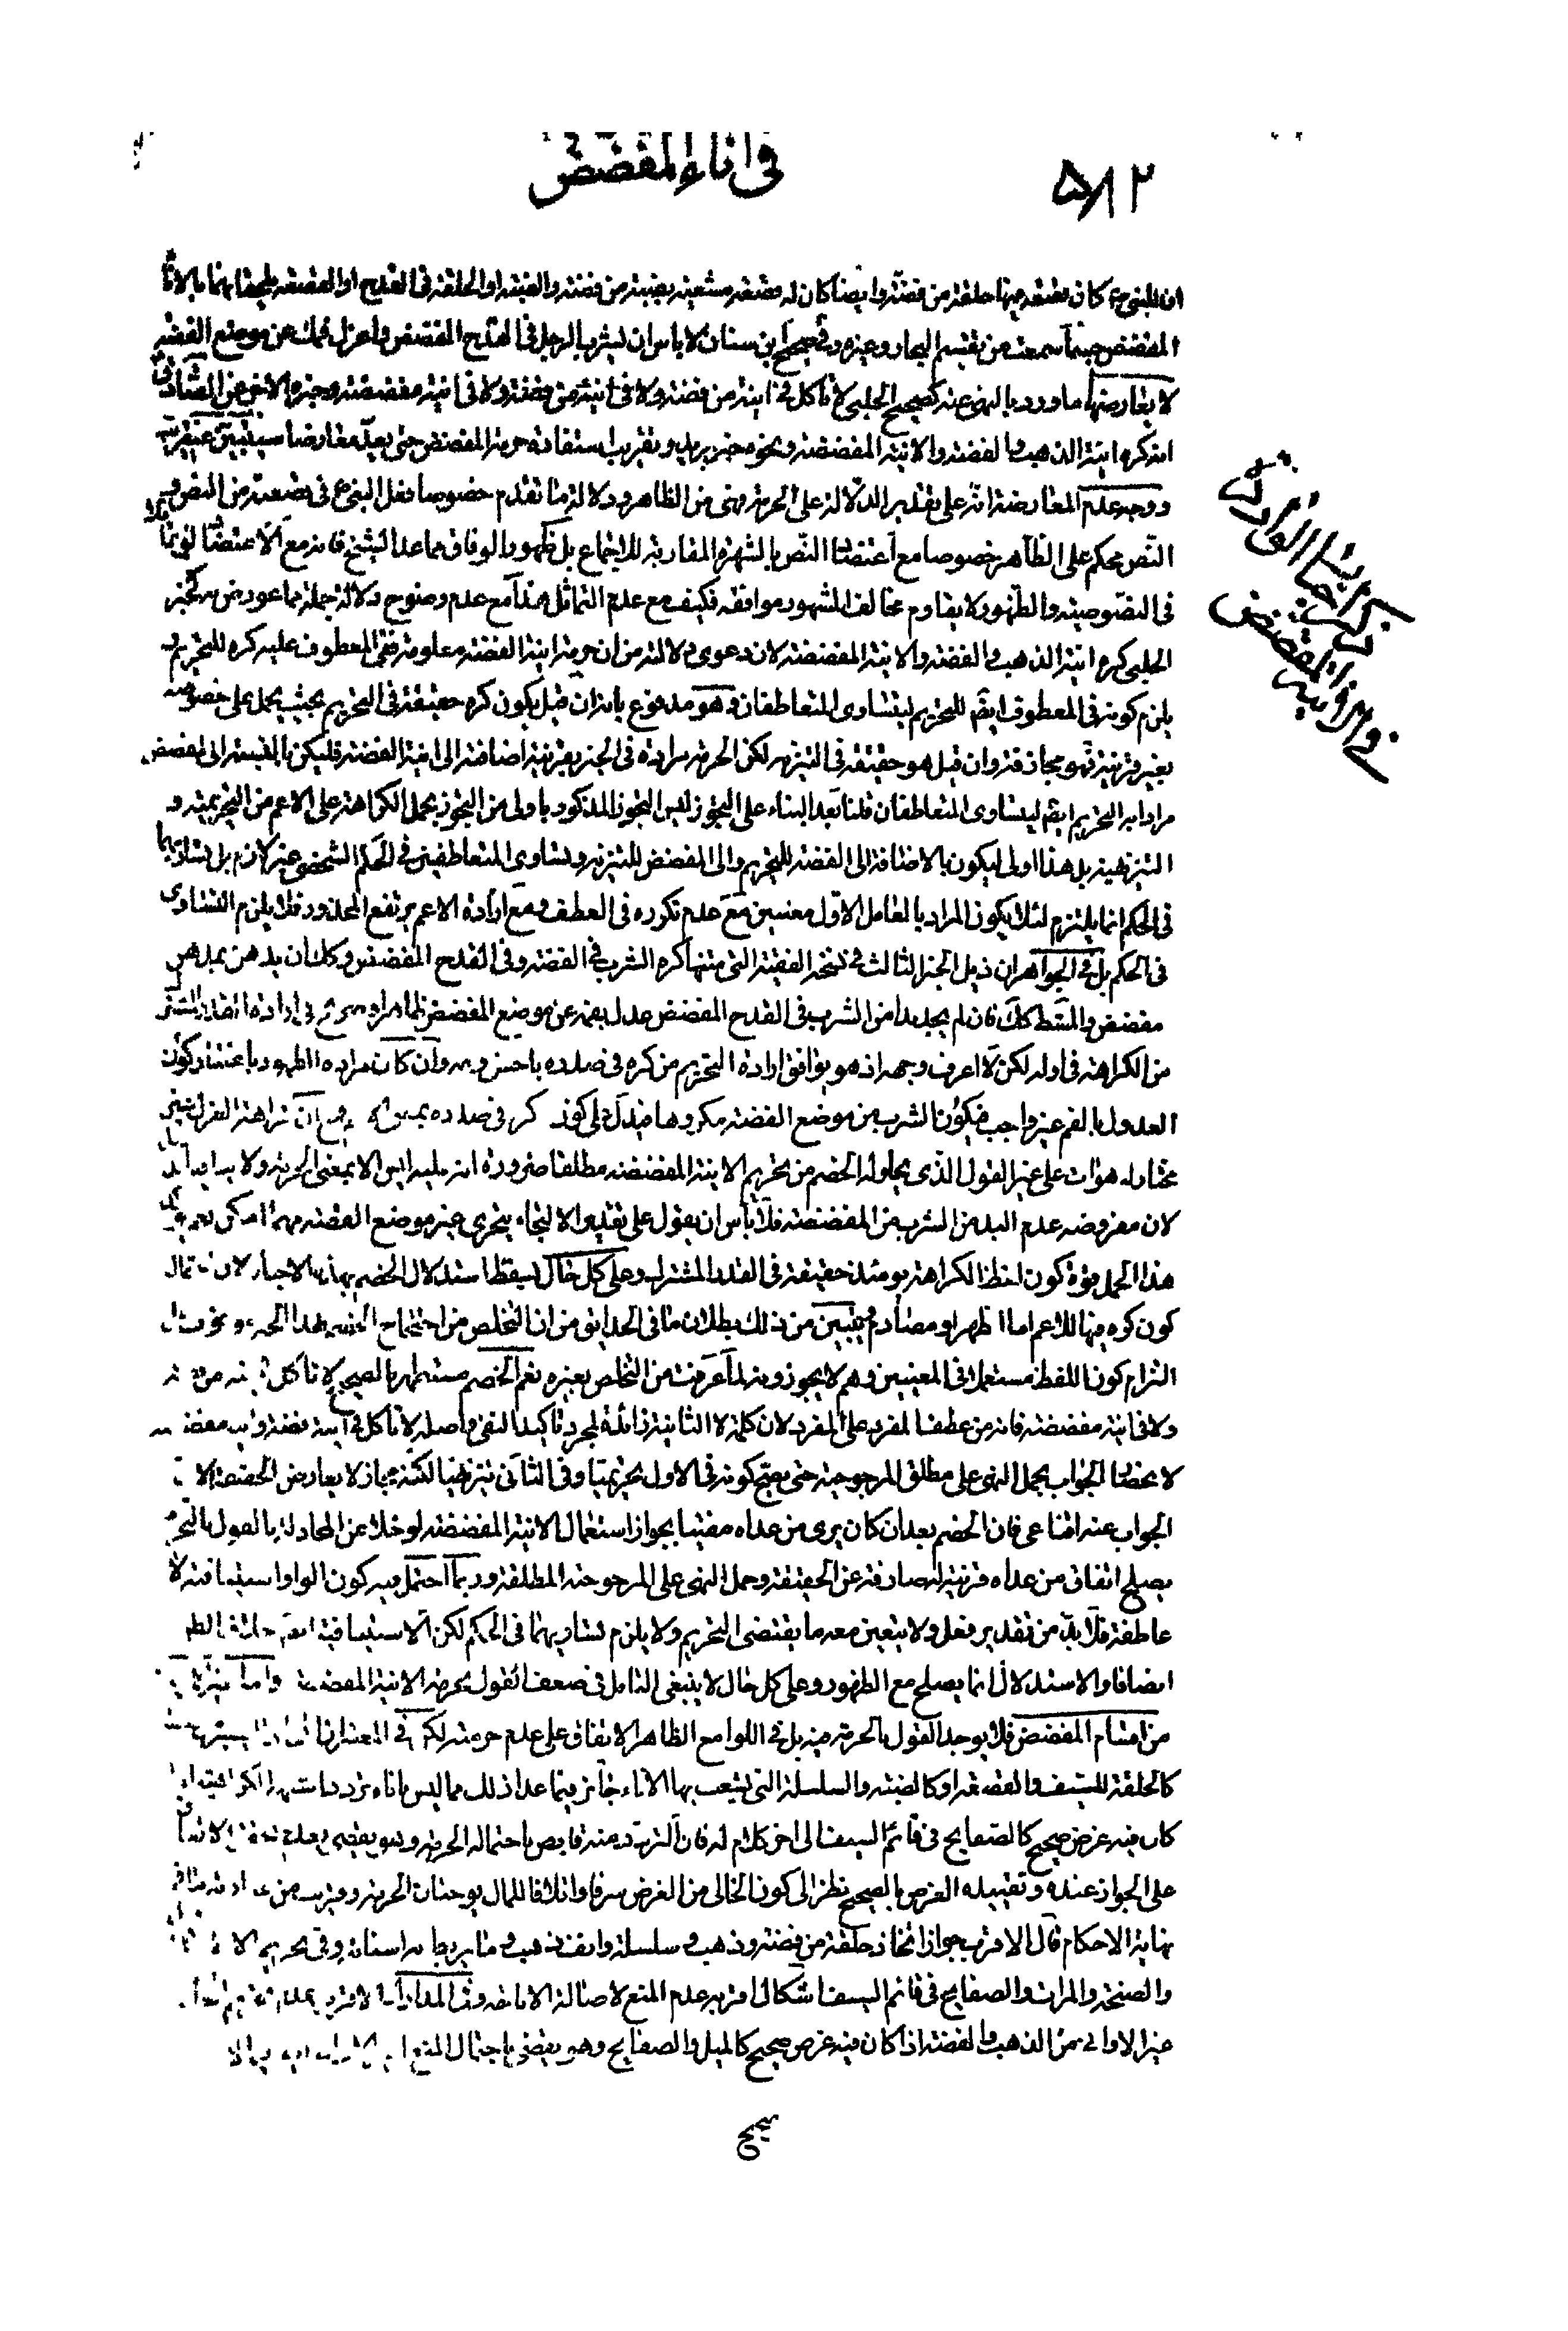 في اناء المفضض
٥٨٢
ان للنبي ص كان قصعة فيها حلقة من فضة وايضا كان له قصعة مشعبة بضبة من فضة والضبة او الحلقة في القدح او القصعة يلحقانهما بالاناء
المفضض حينما سمعت من تقسيم البحار وغيره وفي صحيح ابن سنان لا باس ان يشرب الرجل في القدح المفضض واعزل فمك عن موضع الفضة
لا يعارضها ما ورد بالنهي عنه كصحيح الحلبي لا تاكل في انية من فضة ولا في انية مفضضة وخبره الاخر عن الصادق
انه كره انية الذهب والفضة والانية المفضضة ونحوه خبر بريد وتقريب استفادة حرمة المفضض حتى يعد معارضا سيتبين عنقريب
ووجه عدم المعارضة انه على تقدير الدلالة على الحرمة فهي من الظاهر ودلالة ما تقدم خصوصا فعل النبي ع في قصعته من النص و
النص محكم على الظاهر خصوصا مع اعتضاد النص بالشهرة المقاربة للاجماع بل ظهور الوفاق مما عدا الشيخ فانه مع الاعتضاد
في النصوصية والظهور لا يقاوم مخالف المشهور موافقه فكيف مع عدم التماثل هذا مع عدم وضوح دلالة جملة مما عورض به كخبر
الحلبي كره انية الذهب والفضة والانية المفضضة لان دعوى دلالته من ان حرمة انية الفضة معلومة ففي المعطوف عليه كره للتحريم و
يلزم كونه في المعطوف ايضا للتحريم ليتساوى المتعاطفان وهو مدفوع بانه ان قيل بكون كره حقيقة في التحريم بحيث يحمل على خصوصه
بغير قرينة فهو مجازفة وان قيل هو حقيقة في التنزيه لكن الحرمة مرادة في الخبر بقرينة اضافته الى انية الفضة فليكن بالنسبة الى المفضض
مرادا به التحريم ايضا ليتساوى المتعاطفان قلنا بعد البناء على التجوز ليس التجوز المذكور باولى من التجوز بحمل الكراهة على الاعم من التحريمية و
التنزيهية بل هذا اولى ليكون بالاضافة الى الفضة للتحريم والى المفضض للتنزيه وتساوى المتعاطفين في الحكم الشخصي غير لازم بل تساويهما
في الحكم انما يلتزم لئلا يكون المراد بالعامل الاول معنيين مع عدم تكرره في العطف ومع ارادة الاعم يرتفع المحذور فلا يلزم التساوى
في الحكم بل في الجواهر ان ذيل الخبر الثالث في نسخة الفقيه التي متنها كره الشرب في الفضة وفي القدح المفضض وكك ان يدهن بمدهن
مفضض والمشط كك فان لم يجد بدا من الشرب في القدح المفضض عدل بفمه عن موضع المفضض ظاهر او صريح في ارادة القدر المشترك
من الكراهة في اوله لكن لا اعرف وجهه اذ هو يوافق ارادة التحريم من كره في صدره باحسن وجه وان كان مراده الظهور باعتبار كون
العدول بالفم غير واجب فيكون الشرب من موضع الفضة مكروها فيدل على كون كره في صدره
مختاره هو ات على غير القول الذي يحاوله الخصم من تحريم الانية المفضضة مطلقا ضرورة انه عليه ليس الا بمعنى الحرمة ولا
لان مفروضه عدم البد من الشرب من المفضضة فلا باس ان يقول على تقدير الالتجاء يتحرى غير موضع الفضة مهما امكن نعم
هذا الحمل قوة كون لفظ الكراهة يومئذ حقيقة في القدر المشترك وعلى كل حال يسقط استدلال الخصم بهذه الاخبار لاحتمال
كون كره فيها للاعم اما اظهر او مصادم ويتبين من ذلك بطلان ما في الحدائق من ان التخلص من احتجاج الخصم بهذا الخبر ونحوه
التزام كون اللفظ مستعملا في المعنيين وهم لا يجوزونه لما عرفت من التخلص بغيره نعم الخصم مستظهر بالصحيح لا تاكل في انية من فضة
ولا في انية مفضضة فانه من عطف المفرد على المفرد لان كلمة لا الثانية زائدة لمجرد تاكيد النفي واصله لا تاكل في انية فضة وانية مفضضة
الجواب بحمل النهي على مطلق المرجوحية حتى يصح كونه في الاول تحريميا وفي الثاني تنزيهيا لكنه مجاز لا يعارض الحقيقة الا
الجواب عنه اقناعي فان الخصم بعد ان كان يرى من عداه مفتيا بجواز استعمال الانية المفضضة لو خلا عن المجادلة بالقول بالتحريم
يصلح اتفاق من عداه قرينة لصارفة عن الحقيقة وحمل النهي على المرجوحية المطلقة وربما احتمل فيه كون الواو استينافية لا
عاطفة فلا بد من تقدير فعل ولا يتعين معه ما يقتضي التحريم ولا يلزم تساويهما في الحكم لكن الاستينافية ايضا خلاف الظ
انصافا والاستدلال انما يصلح مع الظهور وعلى كل حال لا ينبغي التامل في ضعف القول بحرمة الانية المفضضة واما
من اقسام المفضض فلا يوجد القول بالحرمة فيه بل في اللوامع الظاهر الاتفاق على عدم حرمته لكن في
كالحلقة للسيف والقصعة او كالضبة والسلسلة التي يشعب بها الاناء جائز فيما عدا ذلك مما ليس باناء تردد
كان فيه غرض صحيح كالصفايح في قائم السيف الى اخر كلام له فان الترديد منه قاض باحتماله الحرمة
على الجواز عنده وتقييده الغرض بالصحيح نظرا الى كون الخالي من الغرض سرفا واتلافا للمال يوجبان الحرمة
نهاية الاحكام قال الاقرب جواز اتخاذ حلقة من فضة وذهب وسلسلة وانف ذهب وما يربط به اسنانه وفي تحريم
والصنجة والمراة والصفايح في قائم السيف اشكال اقربه عدم المنع لاصالة الاباحة وفي المدارك الاقرب عدم تحريم
غير الاواني من الذهب والفضة اذا كان فيه غرض صحيح كالميل والصفايح وهو يقضي باحتمال المنع
صحيح